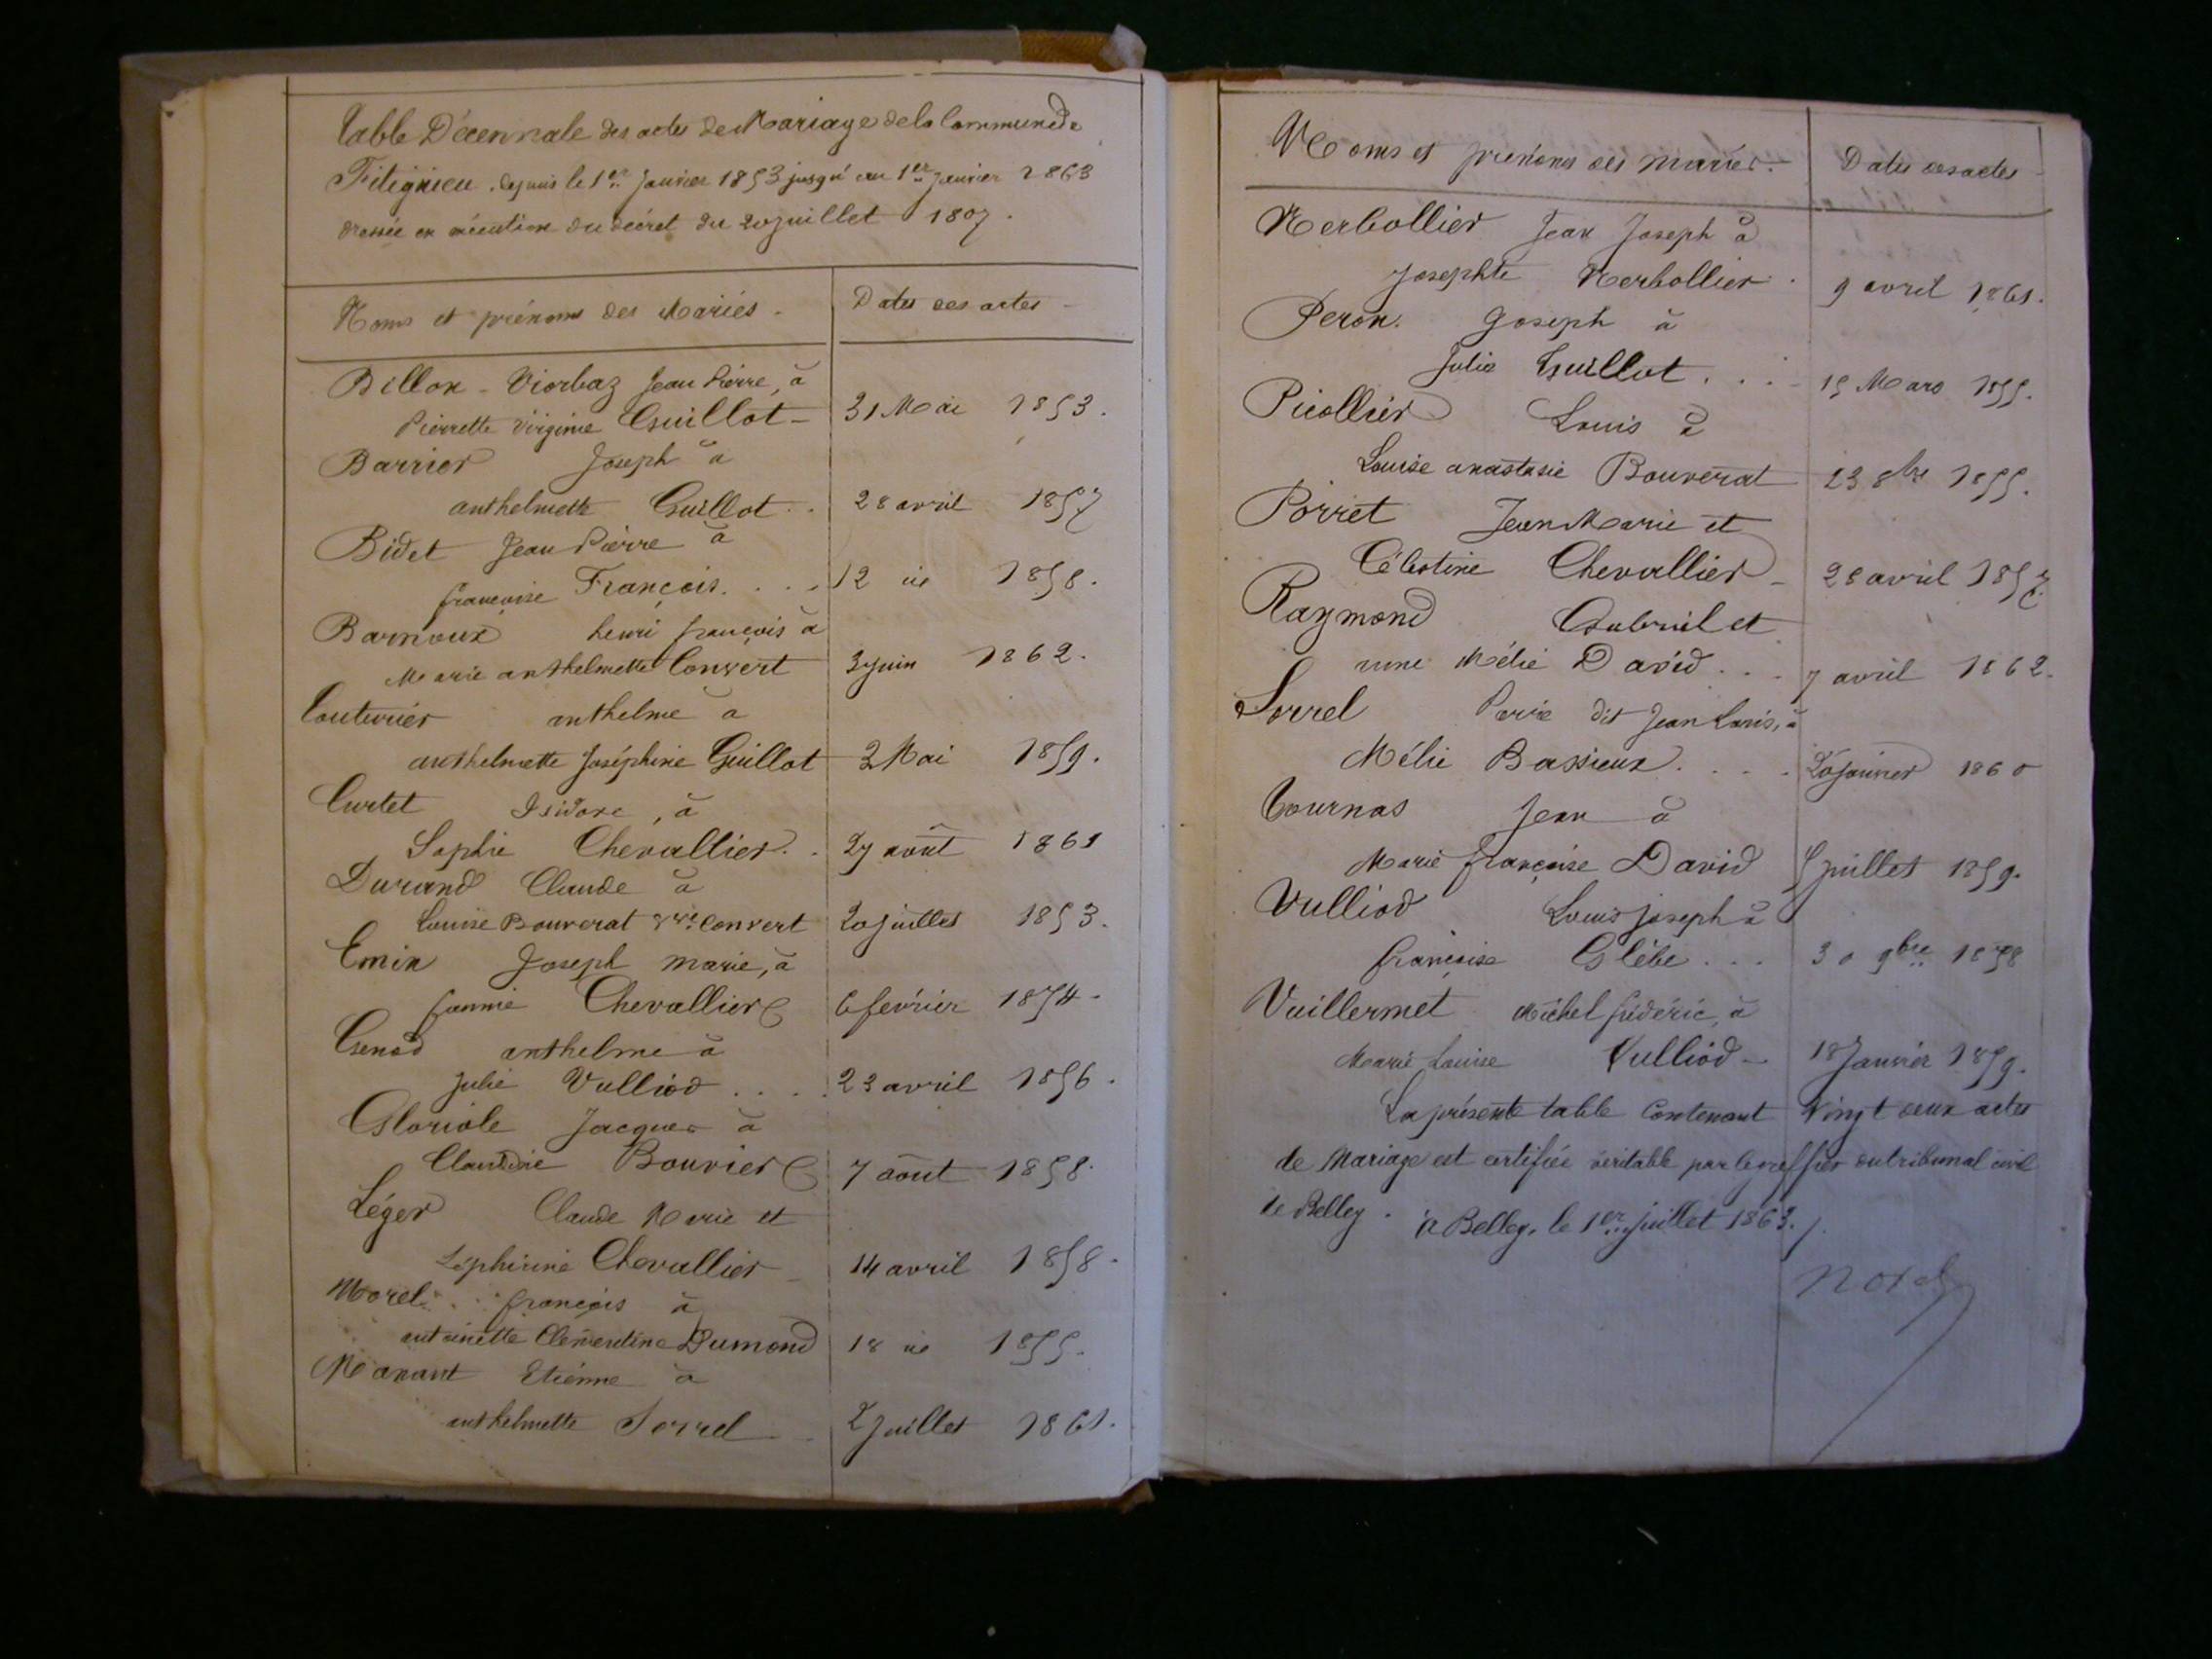 Table Décennale des actes de Mariage de la Commune de
Fitignieu. depuis le 1er Janvier 1853 jusqu'au 1er Janvier 1863
dressée en exécution du décret du 20 juillet 1807.
Noms et prénoms des Mariés. Dates des actes
Billon-Viorbaz Jean Pierre, à
Pierrette Virginie Guillot 31 Mai 1853.
Barrier Joseph à
anthelmette Guillot 28 avril 1857
Bidet Jean Pierre à
françoise François 12 id 1858.
Barnoux henri françois à
Marie anthelmette Convert 3 juin 1862.
Couturier anthelme à
anthelmette Joséphine Guillot 2 Mai 1859.
Curtet Isidore, à
Sophie Chevallier 27 août 1861
Durand Claude à
Louise Bouverat vve Convert 20 juillet 1853.
Emin Joseph marie, à
fannie Chevallier 6 février 1854
Genod anthelme à
Julie Vulliod 23 avril 1856.
Gloriole Jacques à
Claudine Bouvier 7 aout 1858.
Léger Claude Marie et
Séphirine Chevallier 14 avril 1858.
Morel françois à
antoinette Clémentine Dumond 18 id 1855.
Manant Etienne à
anthelmette Sorrel 2 Juillet 1861.
Noms et prénoms des mariés. Dates des actes
Nerbollier Jean Joseph à
Josephte Nerbollier. 9 avril 1861.
Peron. Joseph à
Julie Guillot 15 Mars 1855.
Picollier Louis à
Louise anastasie Bouverat 23 8bre 1855.
Poirret Jean Marie et
Célestine Chevallier 28 avril 1857
Raymond Gabriel et
Mélie David 7 avril 1862.
Sorrel Pierre dit Jean Louis, à
Mélie Bassieux janvier 1860
Tournas Jean à
Marie françoise David 5 juillet 1859.
Vulliod Louis joseph à
françoise Glèbe 30 9bre 1858
Vuillermet Michel frédéric, à
Marie Louise Vulliod 18 Janvier 1859.
La présente table Contenant Vingt deux actes
de Mariage est certifiée véritable par le greffier du tribunal civil
de Belley. à Belley, le 1er juillet 1863.